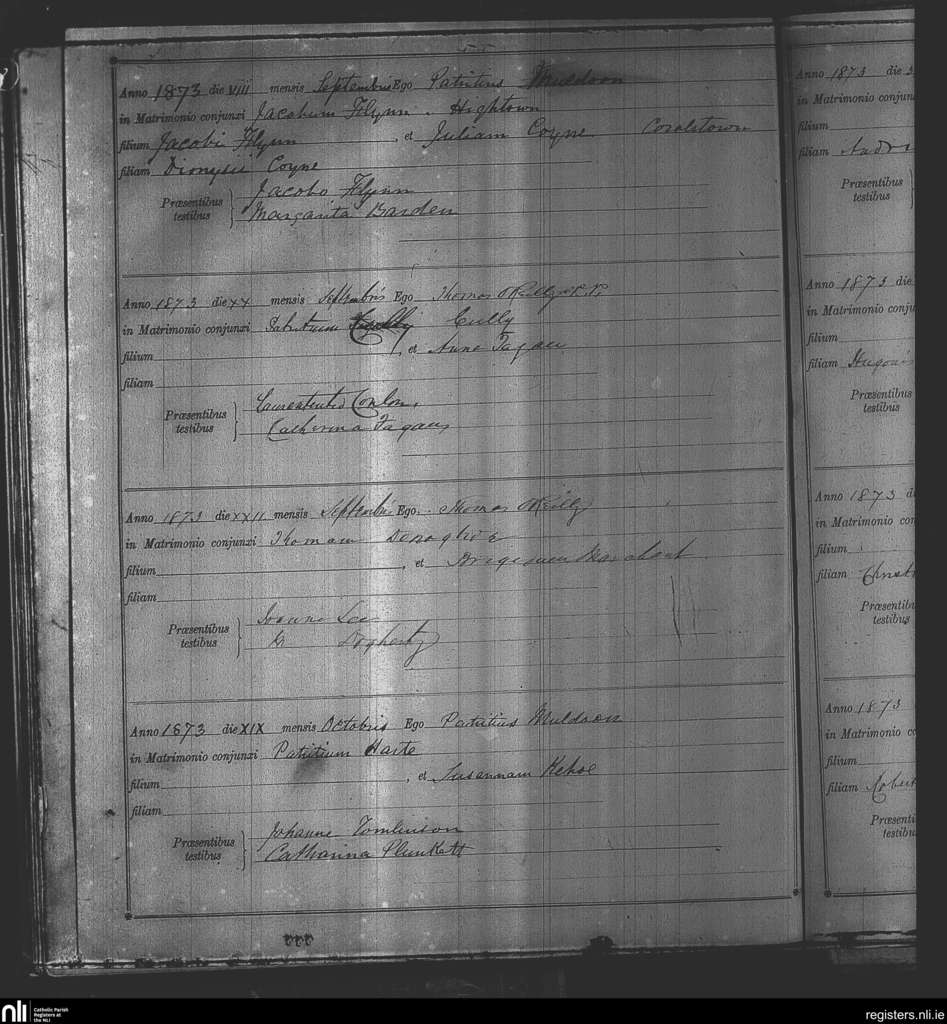 Anno 1873 die VIII mensis Septembris Ego Patritius Muldoon
in Matrimonio conjunxi Jacobum Flynn . Hightown
filium Jacobi Flynn , et Juliam Coyne Coralstown
filiam Dionysii Coyne
Præsentibus testibus } Jacobo Flynn
Margarita Barden
Anno 1873 die XX mensis Septembris Ego Thomas O'Reilly P.P.
in Matrimonio conjunxi Patritium Cully
filium , et Anne Fagan
filiam
Præsentibus testibus } Laurentio Conlon
Catherina Fagan
Anno 1873 die XXII mensis Septembris Ego Thomas O'Reilly
in Matrimonio conjunxi Thomam Donaghoe
filium , et
filiam
Præsentibus testibus } Joanne Lee
Dogherty
Anno 1873 die XIX mensis Octobris Ego Patritius Muldoon
in Matrimonio conjunxi Patritium Harte
filium , et Susannam Kehoe
filiam
Præsentibus testibus } Johanne Tomlinson
Catharina Plunkett
Anno 1873 die
in Matrimonio
filium
filiam
Præsentibus
testibus
Anno 1873 die
in Matrimonio
filium
filiam
Præsentibus
testibus
Anno 1873
in Matrimonio
filium
filiam
Præsentib
testibus
Anno 1873
in Matrimonio
filium
filiam Robert
Præsenti
testibu
nli Catholic Parish Registers at the NLI
registers.nli.ie